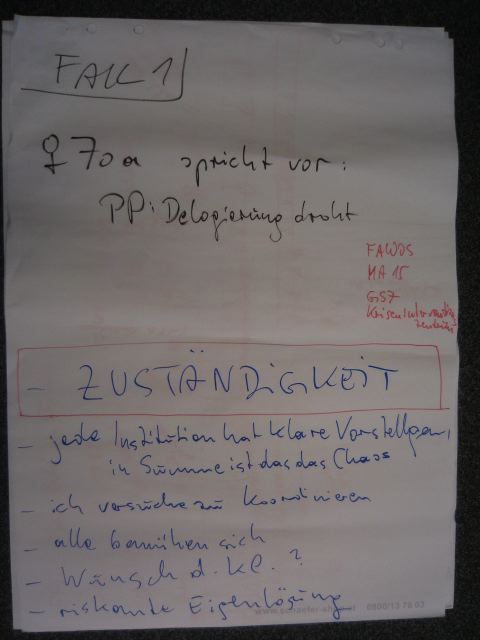 FALL 1
♀ 70a spricht vor:
PP: Delogierung droht
FAWOS
MA 15
GSZ
Kriseninterventions
zentrum
- ZUSTÄNDIGKEIT
- jede Institution hat klare Vorstellgen,
in Summe ist das das Chaos
- ich versuche zu koordinieren
- alle bemühen sich
- Wunsch d. Kl. ?
- riskante Eigenlösung
www.schaefer-shop.at 0800/13 76 03